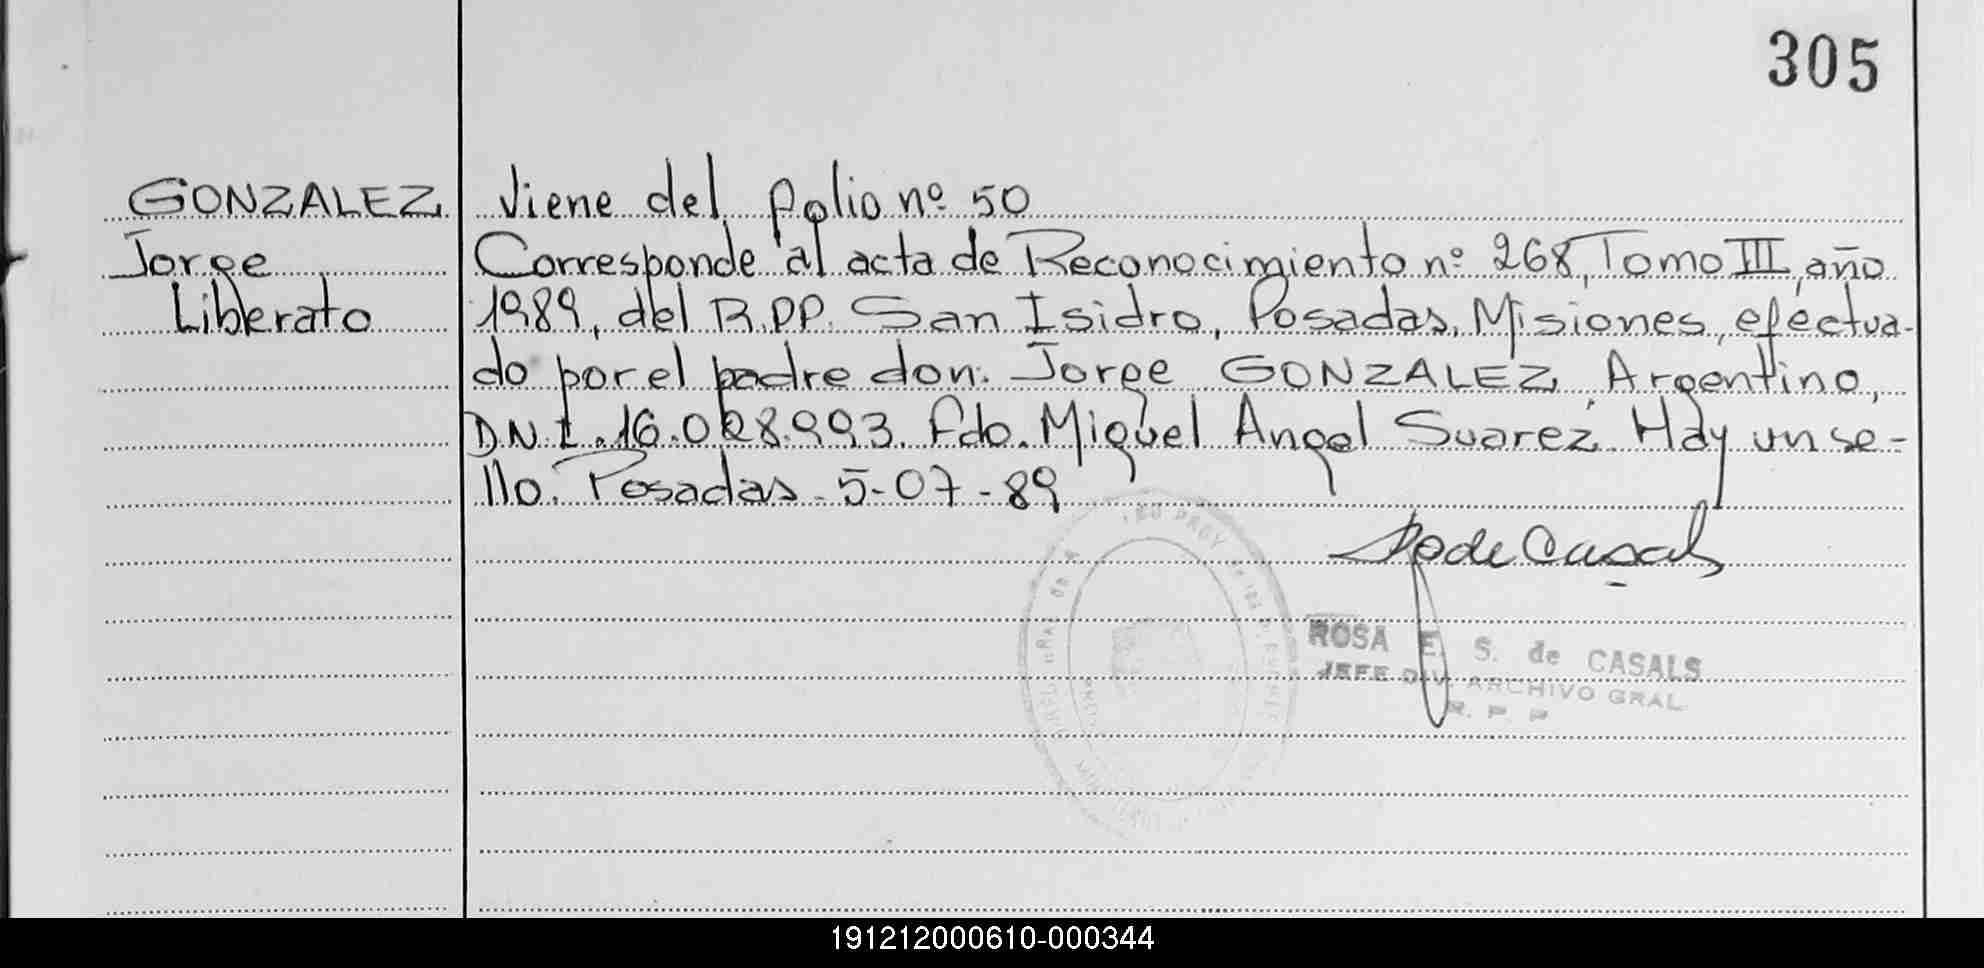 305
GONZALEZ Viene del folio nº 50
Jorge Corresponde al acta de Reconocimiento nº 268, Tomo III, año
Liberato 1989, del R.PP. San Isidro, Posadas, Misiones, efectua-
do por el padre don. Jorge GONZALEZ, Argentino,
D.N.I. 16.028.993. Fdo. Miguel Angel Suarez. Hay un se-
llo. Posadas. 5-07-89
de Casals
ROSA E. S. de CASALS
JEFE DIV. ARCHIVO GRAL
R. P. P
191212000610-000344